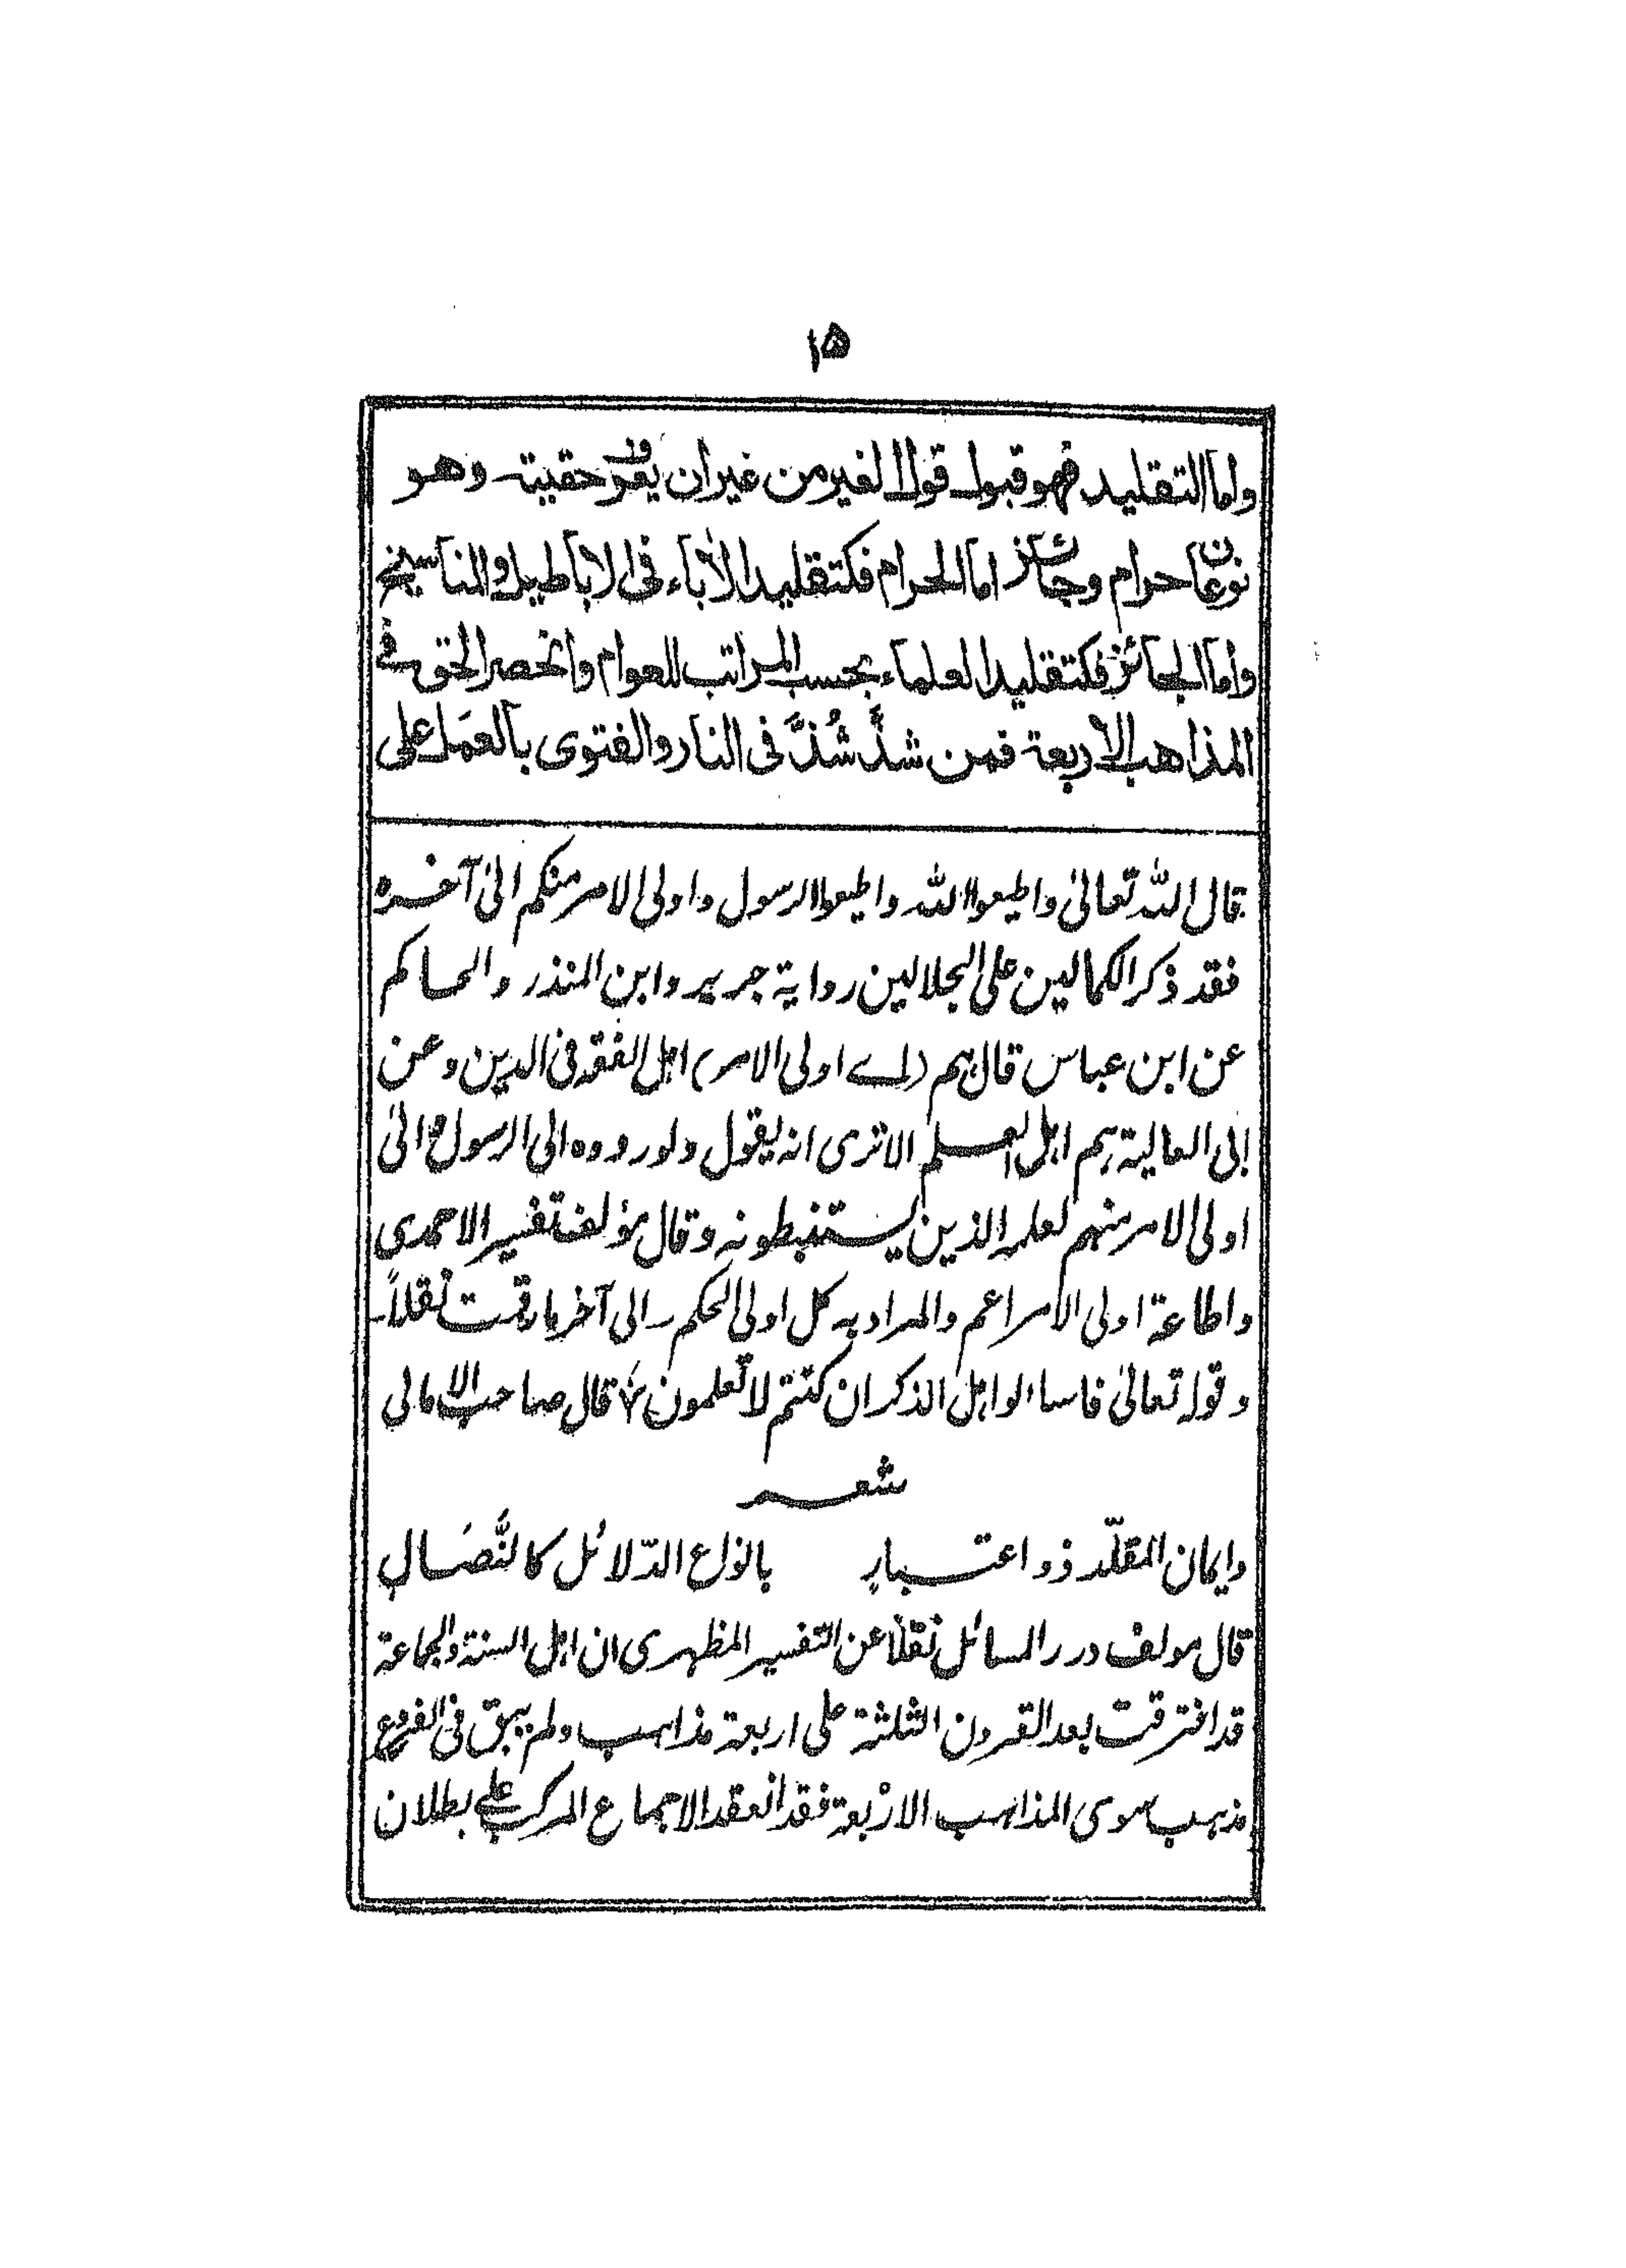 ۱۵
واما التقليد فهو قبول قول الغير من غير ان يعرف حقيته وهو
نوعان حرام وجائز اما الحرام فكتقليد الأباء فى الاباطيل والمناسيخ
واما الجائز فكتقليد العلماء بحسب المراتب للعوام وانحصر الحق فى
المذاهب الاربعة فمن شذَّ شُذَّ فى النار والفتوى بالعمل على
قال الله تعالىٰ واطيعوا الله واطيعوا الرسول واولى الامر منكم الىٰ آخره
فقد ذكر الكمالين على الجلالين رواية جرير وابن المنذر والحاكم
عن ابن عباس قال هم (اے اولى الامر) اهل الفقه فى الدين وعن
ابى العالية هم اهل العلم الا ترى انه يقول ولو ردوه الى الرسول و الىٰ
اولى الامر منهم لعلمه الذين يستنبطونه وقال مؤلف تفسير الاحمدى
واطاعة اولى الامر اعم والمراد به كل اولى الحكم ـ الى آخر ما رقمت نقلاً ـ
وقوله تعالىٰ فاساءلوا اهل الذكر ان كنتم لا تعلمون قال صاحب الامالى
شعر
وايمان المقلّد ذو اعتبارٍ بانواع الدّلائل كالنَّصَالِ
قال مولف درر المسائل نقلا عن التفسير المظهرى ان اهل السنة والجماعة
قد افترقت بعد القرون الثلثة على اربعة مذاهب ولم يبق فى الفروع
مذهب سوى المذاهب الاربعة فقد انعقد الاجماع المركب على بطلان